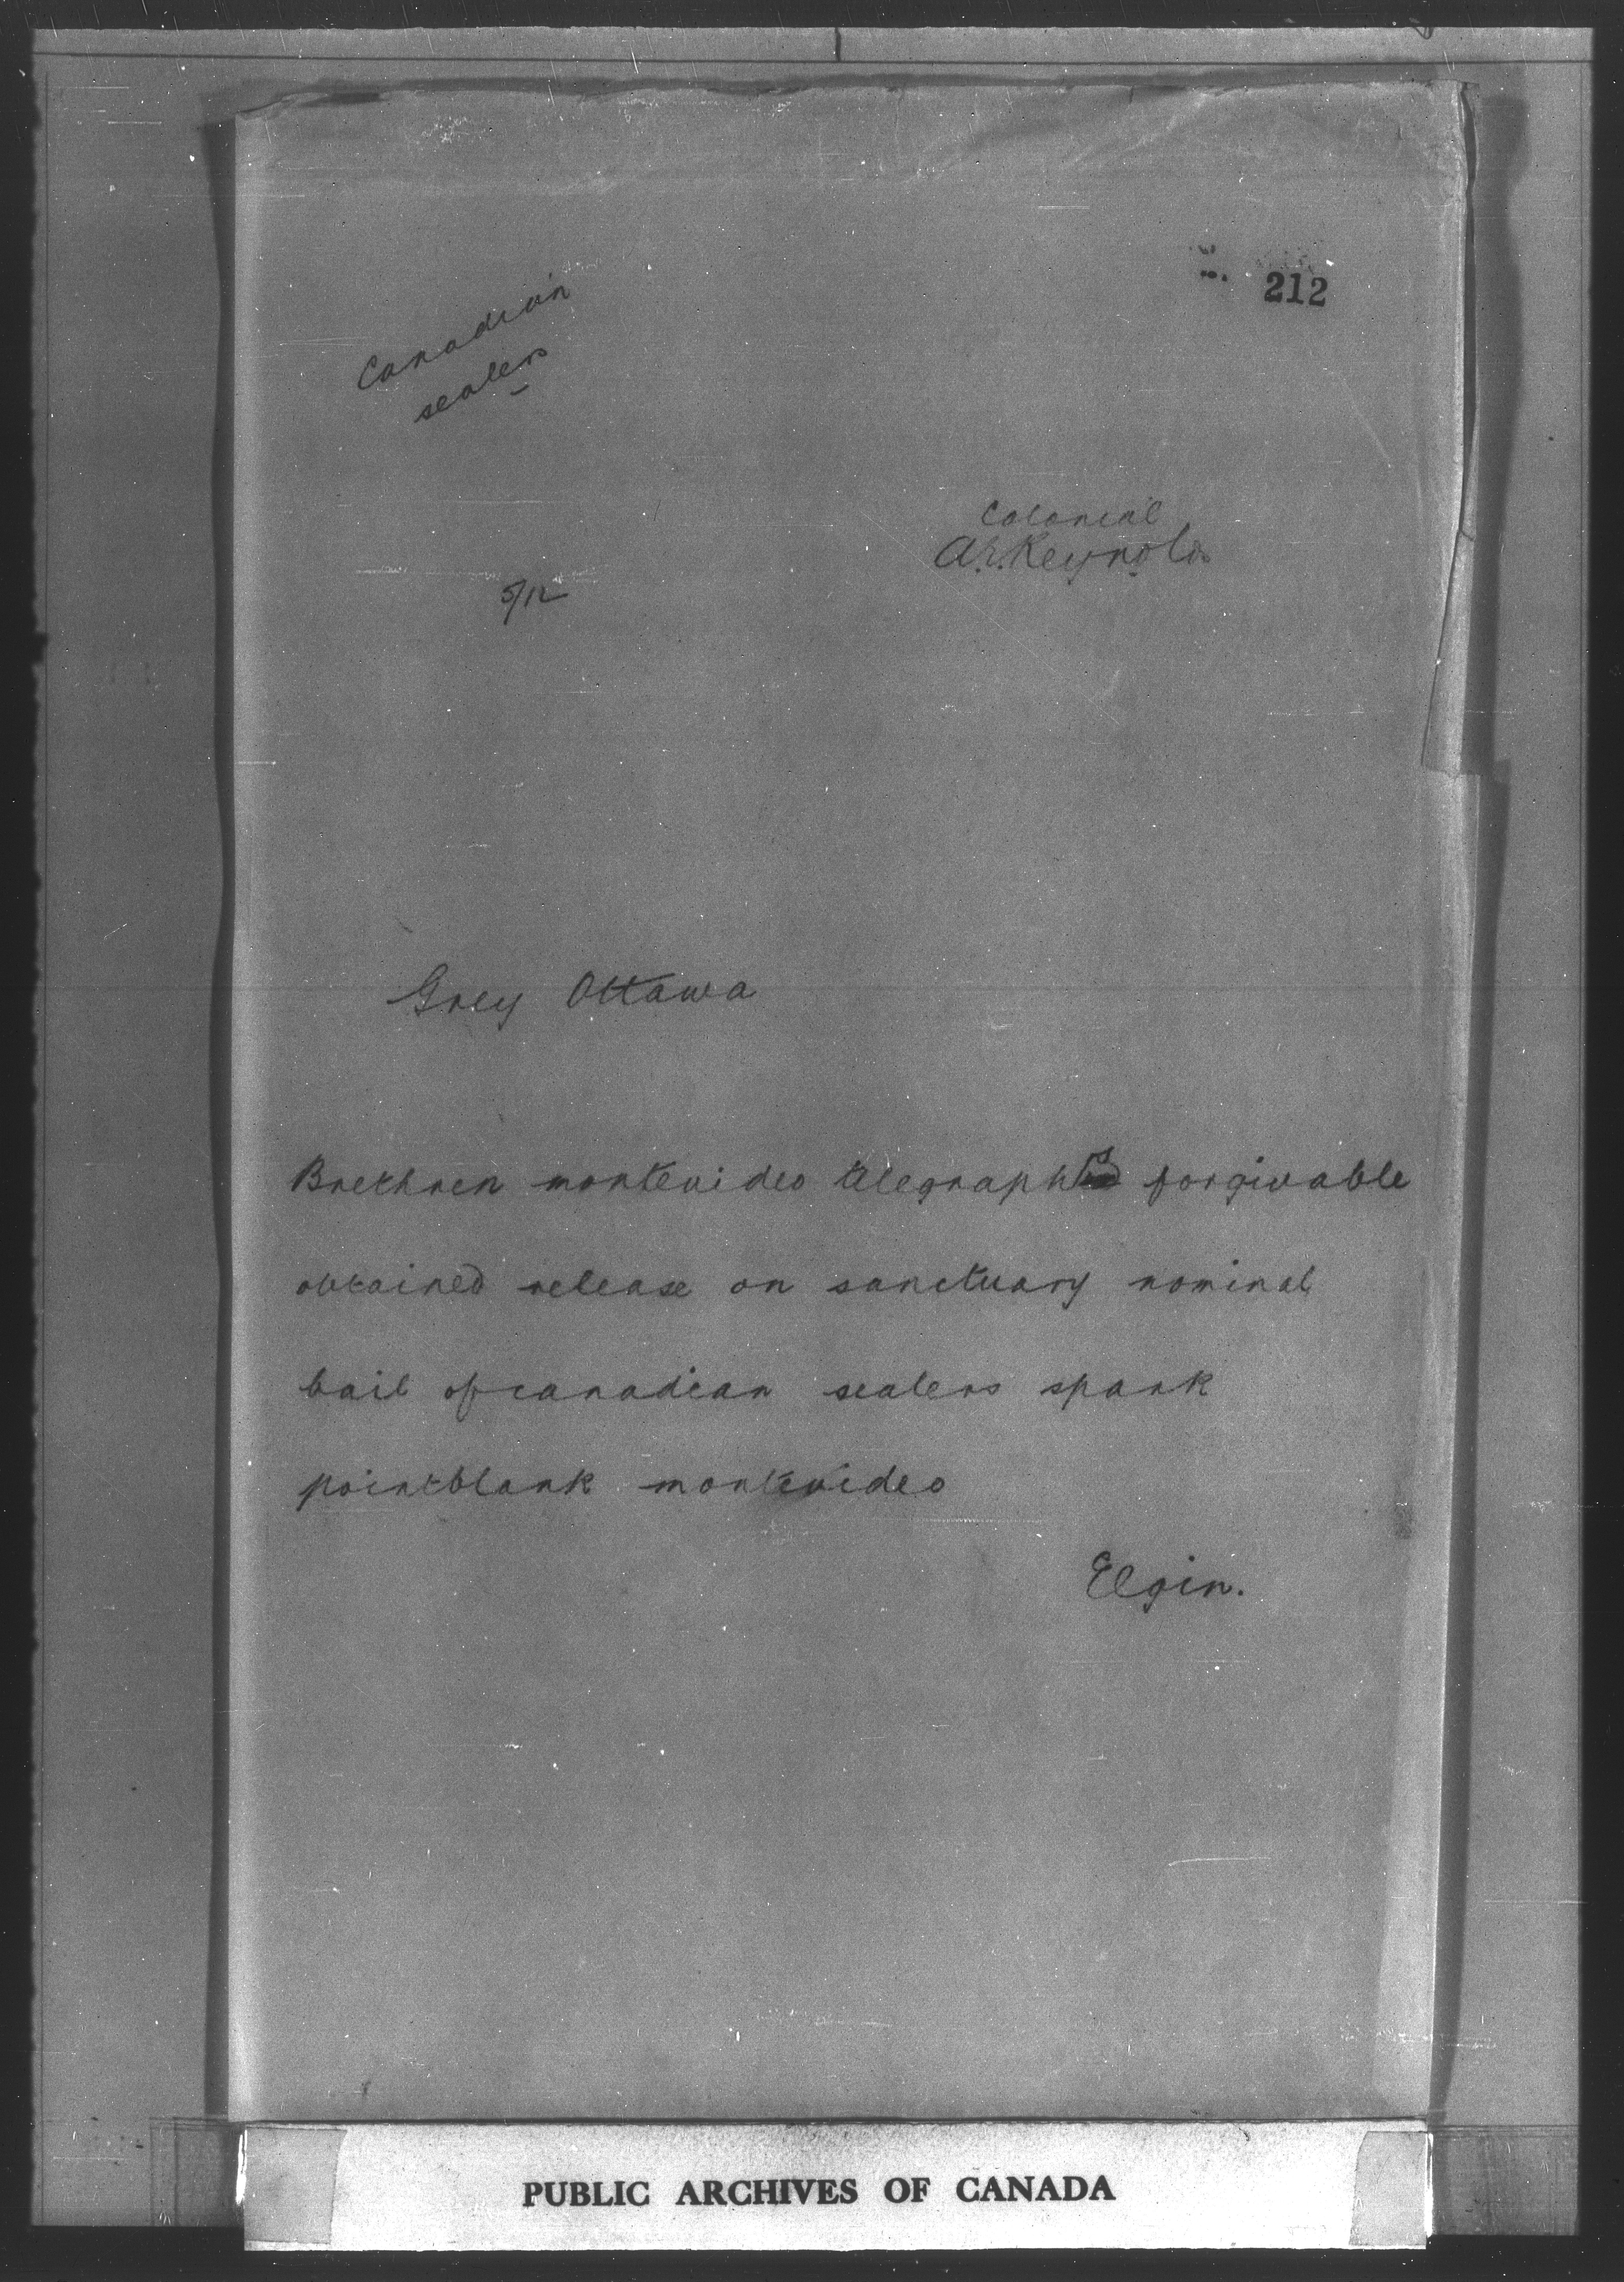 212
Canadian
sealers
Colonial
A.E. Reynolds
5/12
Grey Ottawa
Brethren montevideo telegraphs forgivable
obtained release on sanctuary nominal
bail of canadian sealers spark
pointblank montevideo
Elgin.
PUBLIC ARCHIVES OF CANADA